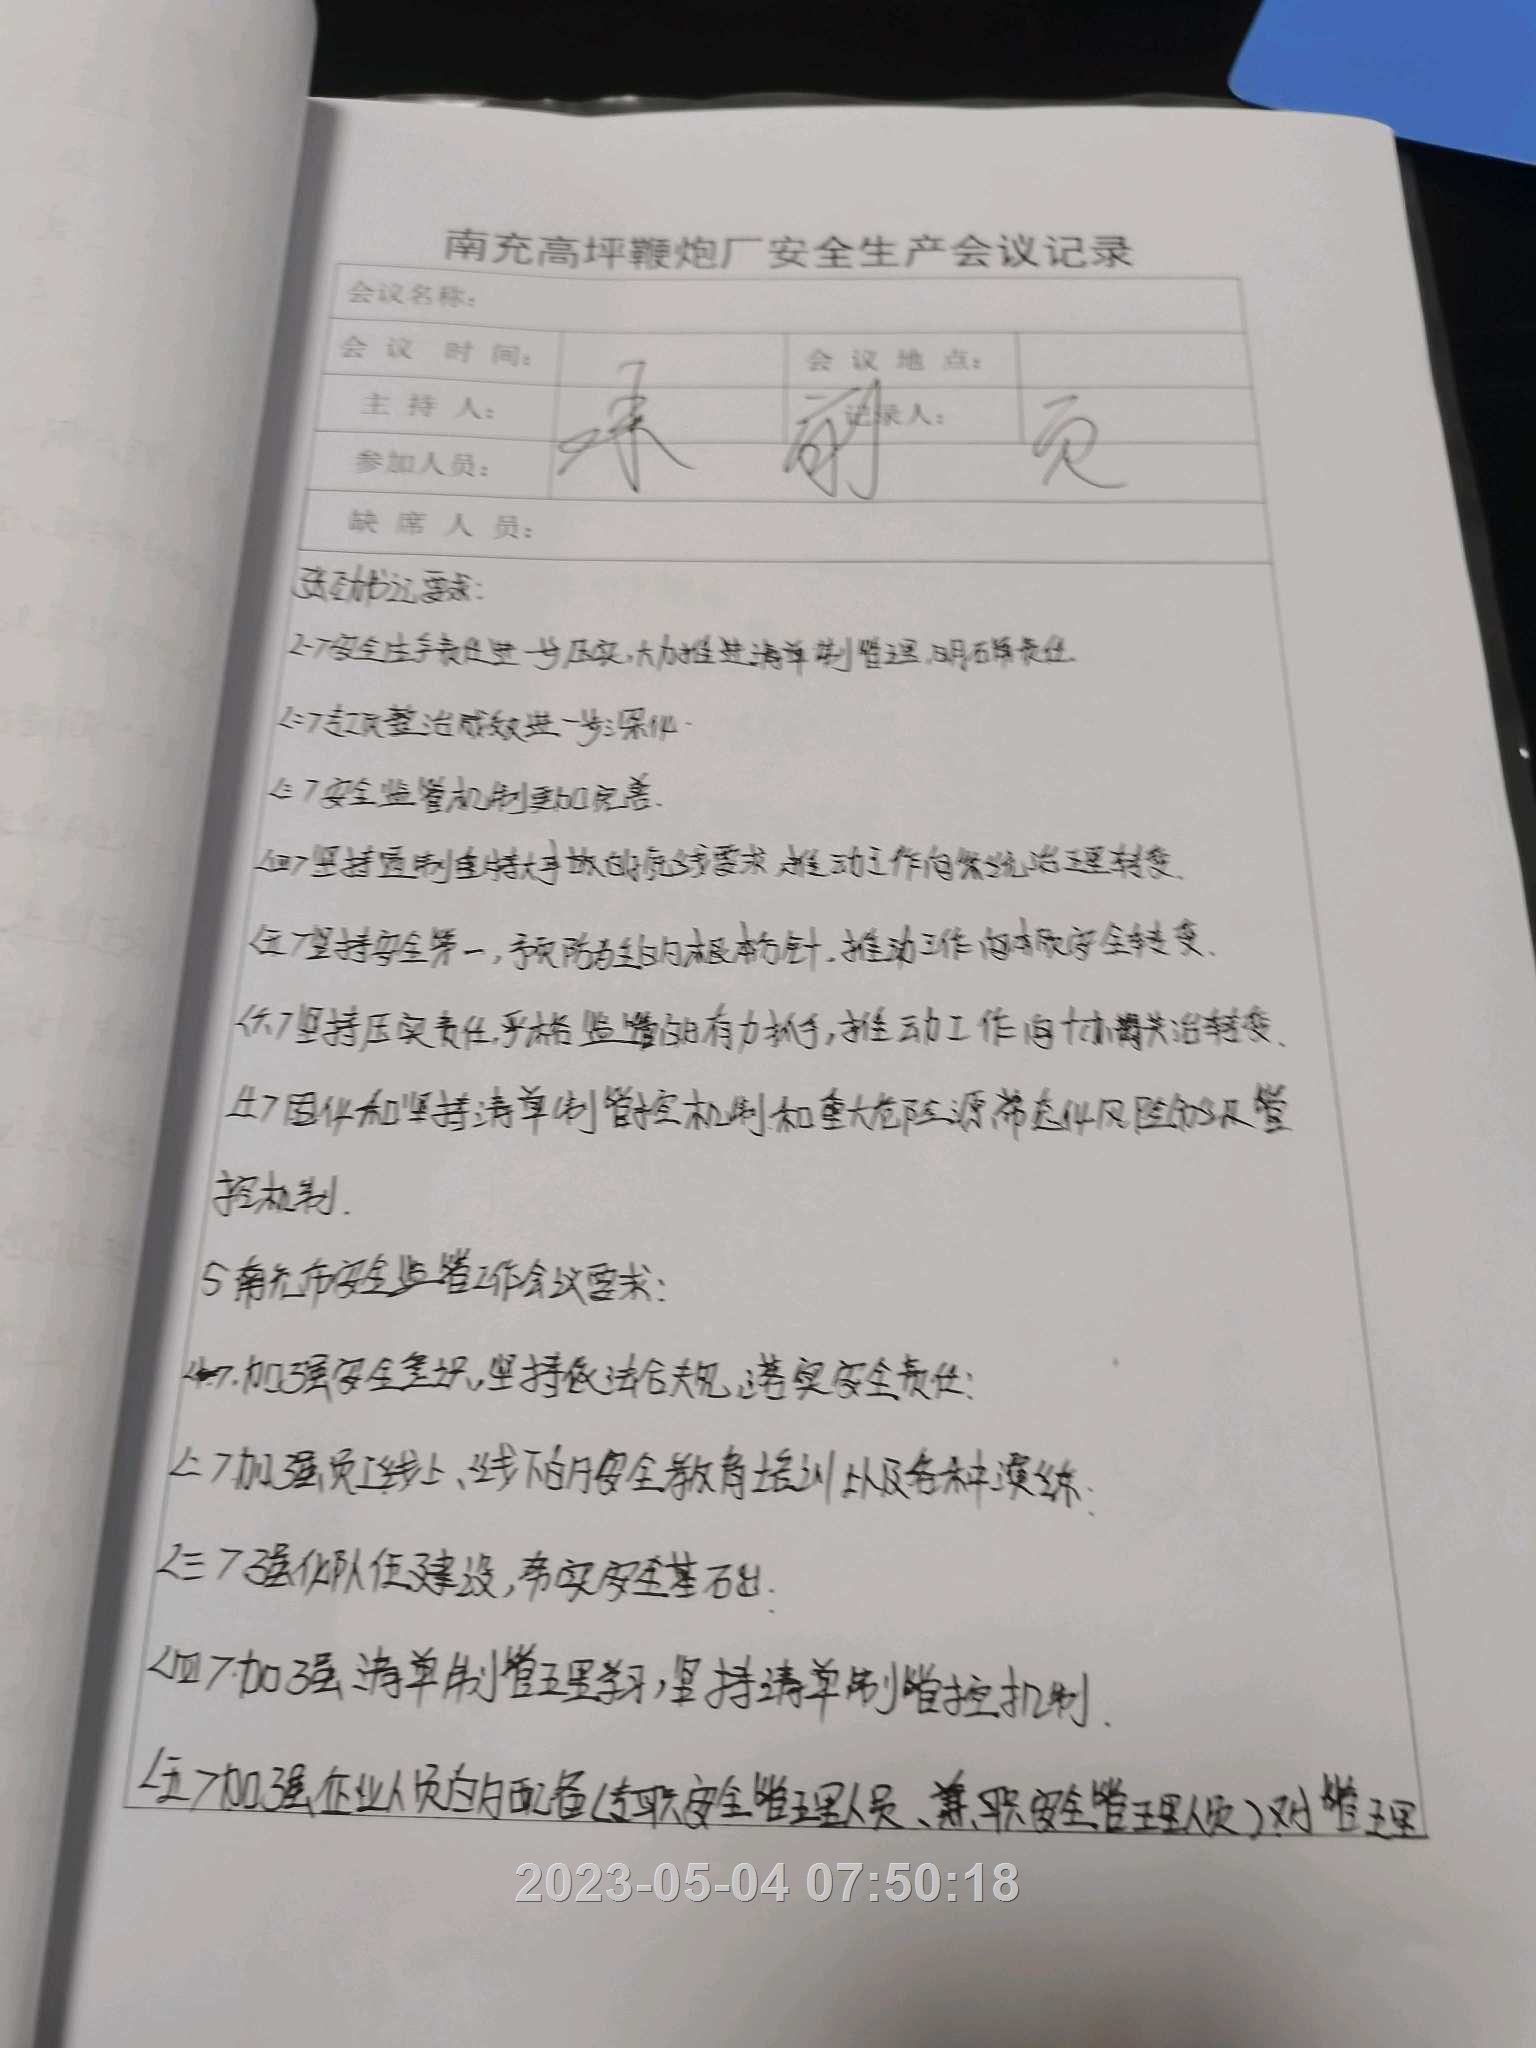 南充高坪鞭炮厂安全生产会议记录
会议名称：
会 议 时 间： 会 议 地 点：
主 持 人： 记录人：
承 前 页
参加人员：
缺 席 人 员：
书记要求：
<一>安全生产责任进一步压实,大力推进清单制管理,明确责任.
<二>专项整治成效进一步深化.
<三>安全监管机制更加完善.
<四>坚持遏制重特大事故的底线要求,推动工作向系统治理转变.
<五>坚持安全第一,预防为主的根本方针,推动工作向本质安全转变.
<六>坚持压实责任,严格监管的有力抓手,推动工作向 治转变.
<七>固化和坚持清单制管控机制和重大危险源常态化风险分级管
控机制.
5 南充市安全监管工作会议要求:
<一>.加强安全意识,坚持依法合规,落实安全责任;
<二>加强员工线上、线下的安全教育培训以及各种演练;
<三>强化队伍建设,夯实安全基础;
<四>.加强清单制管理学习,坚持清单制管控机制.
<五>加强企业人员的配备(专职安全管理人员、兼职安全管理人员)对管理
2023-05-04 07:50:18